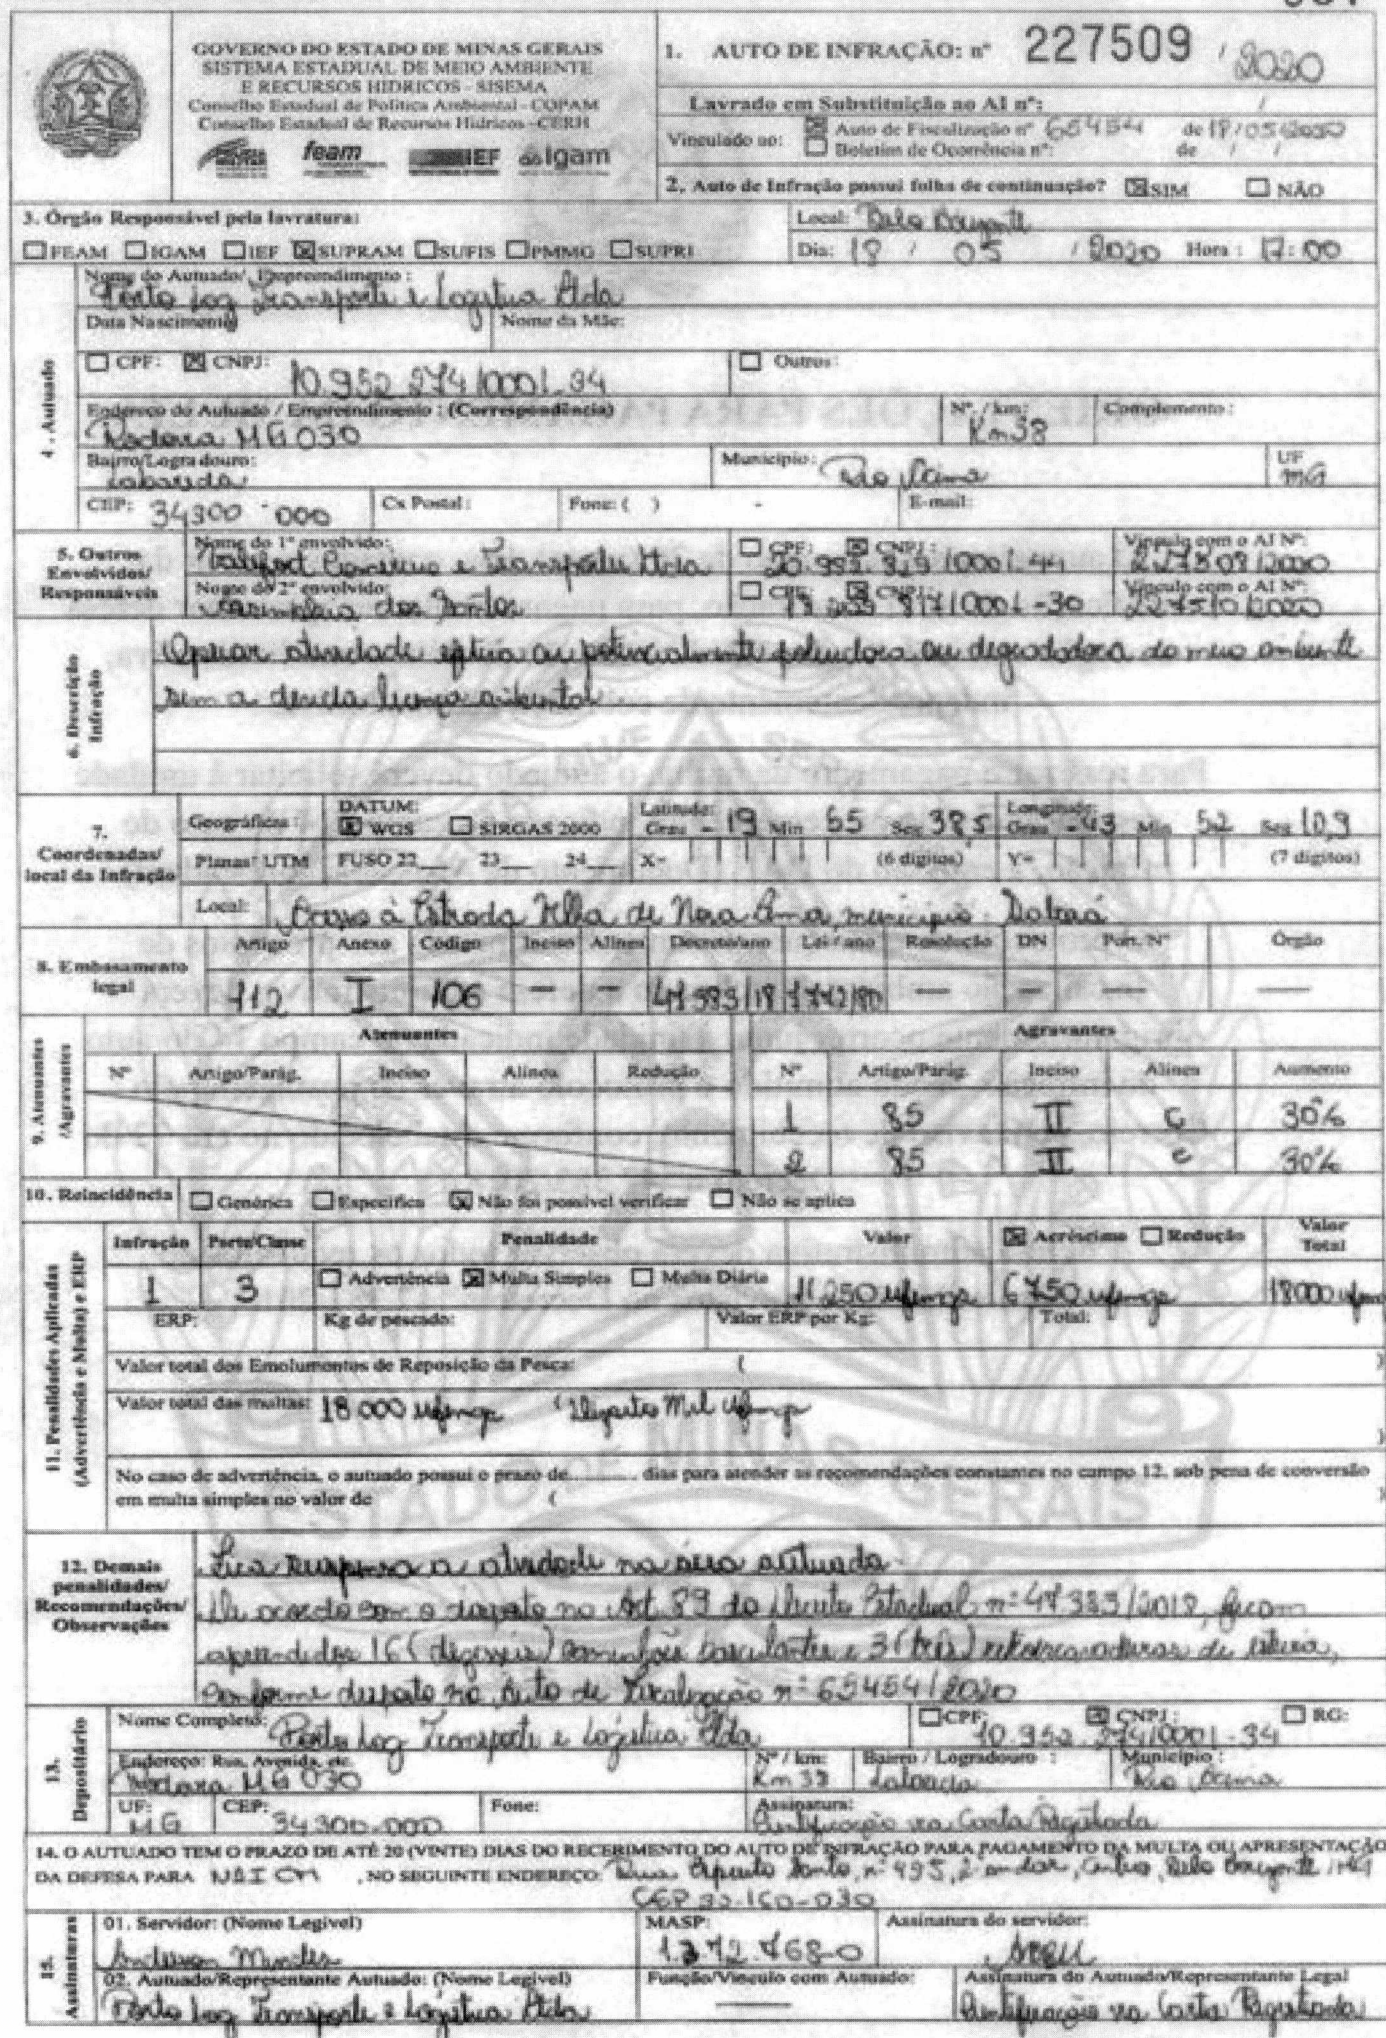 GOVERNO DO ESTADO DE MINAS GERAIS
SISTEMA ESTADUAL DE MEIO AMBIENTE
E RECURSOS HIDRICOS - SISEMA
Conselho Estadual de Política Ambiental - COPAM
Conselho Estadual de Recursos Hídricos - CERH
feam IEF igam
1. AUTO DE INFRAÇÃO: nº 227509 / 2020
Lavrado em Substituição ao AI nº: /
Vinculado ao: ☒ Auto de Fiscalização nº 65454 de 18/05/2020
☐ Boletim de Ocorrência nº: de / /
2. Auto de Infração possui folha de continuação? ☒ SIM ☐ NÃO
3. Órgão Responsável pela lavratura:
☐ FEAM ☐ IGAM ☐ IEF ☒ SUPRAM ☐ SUFIS ☐ PMMG ☐ SUPRI
Local: Belo Horizonte
Dia: 18 / 05 / 2020 Hora: 17:00
4. Autuado
Nome do Autuado/ Empreendimento:
Porto Log Transporte e Logistica Ltda
Data Nascimento Nome da Mãe:
☐ CPF: ☒ CNPJ: 10.952.274/0001-34 ☐ Outros:
Endereço do Autuado / Empreendimento: (Correspondência) Nº. / km: Complemento:
Rodovia MG 030 Km 38
Bairro/Logradouro: Município: Rio Acima UF MG
CEP: 34300-000 Cx Postal: Fone: ( ) - E-mail:
5. Outros Envolvidos/ Responsáveis
Nome do 1º envolvido: ☐ CPF: ☒ CNPJ: Vínculo com o AI Nº:
Comercio e Transportes Ltda
Nome do 2º envolvido: ☐ CPF: ☒ CNPJ: Vínculo com o AI Nº:
dos Santos 227510/2020
6. Descrição Infração
Operar atividade efetiva ou potencialmente poluidora ou degradadora do meio ambiente
sem a devida licença ambiental.
7. Coordenadas/ local da Infração
Geográficas: DATUM: ☒ WGS ☐ SIRGAS 2000 Latitude: Grau -19 Min 55 Seg 38,5 Longitude: Grau -43 Min 52 Seg 10,9
Planas: UTM FUSO 22 23 24 X= (6 dígitos) Y= (7 dígitos)
Local: Acesso à Estrada Velha de Nova Lima, município: Sabará
8. Embasamento legal
Artigo Anexo Código Inciso Alínea Decreto/ano Lei / ano Resolução DN Port. Nº Órgão
112 I 106 — — 47.383/18 7772/80 — — — —
9. Atenuantes /Agravantes
Atenuantes Agravantes
Nº Artigo/Parág. Inciso Alínea Redução Nº Artigo/Parág. Inciso Alínea Aumento
1 85 II c 30%
2 85 II e 30%
10. Reincidência ☐ Genérica ☐ Específica ☒ Não foi possível verificar ☐ Não se aplica
11. Penalidades Aplicadas (Advertência e Multa) e ERP
Infração Porte/Classe Penalidade Valor ☒ Acréscimo ☐ Redução Valor Total
1 3 ☐ Advertência ☒ Multa Simples ☐ Multa Diária 11.250 ufemgs 6.750 ufemgs 18.000 ufemgs
ERP: Kg de pescado: Valor ERP por Kg: Total:
Valor total dos Emolumentos de Reposição da Pesca: ( )
Valor total das multas: 18.000 ufemgs (Dezoito Mil Ufemgs )
No caso de advertência, o autuado possui o prazo de........... dias para atender as recomendações constantes no campo 12, sob pena de conversão
em multa simples no valor de ( )
12. Demais penalidades/ Recomendações/ Observações
Fica suspensa a atividade na área autuada.
De acordo com o disposto no Art. 89 do Decreto Estadual nº 47.383/2018, ficam
apreendidos 16 (dezesseis) caminhões basculantes e 3 (três) retroescavadeiras de esteira,
conforme disposto no Auto de Fiscalização nº 65454/2020
13. Depositário
Nome Completo: Porto Log Transporte e Logistica Ltda ☐ CPF: ☒ CNPJ: ☐ RG:
10.952.274/0001-34
Endereço: Rua, Avenida, etc. Nº / km: Bairro / Logradouro: Município:
Rodovia MG 030 Km 38 Rio Acima
UF: MG CEP: 34300-000 Fone: Assinatura:
Notificação via Carta Registrada
14. O AUTUADO TEM O PRAZO DE ATÉ 20 (VINTE) DIAS DO RECEBIMENTO DO AUTO DE INFRAÇÃO PARA PAGAMENTO DA MULTA OU APRESENTAÇÃO
DA DEFESA PARA , NO SEGUINTE ENDEREÇO: Rua Espirito Santo, nº 495, 2º andar, Centro, Belo Horizonte / MG
CEP 30.160-030
15. Assinaturas
01. Servidor: (Nome Legível) MASP: Assinatura do servidor:
Anderson Mendes 1.372.768-0
02. Autuado/Representante Autuado: (Nome Legível) Função/Vínculo com Autuado: Assinatura do Autuado/Representante Legal
Porto Log Transporte e Logistica Ltda — Notificação via Carta Registrada